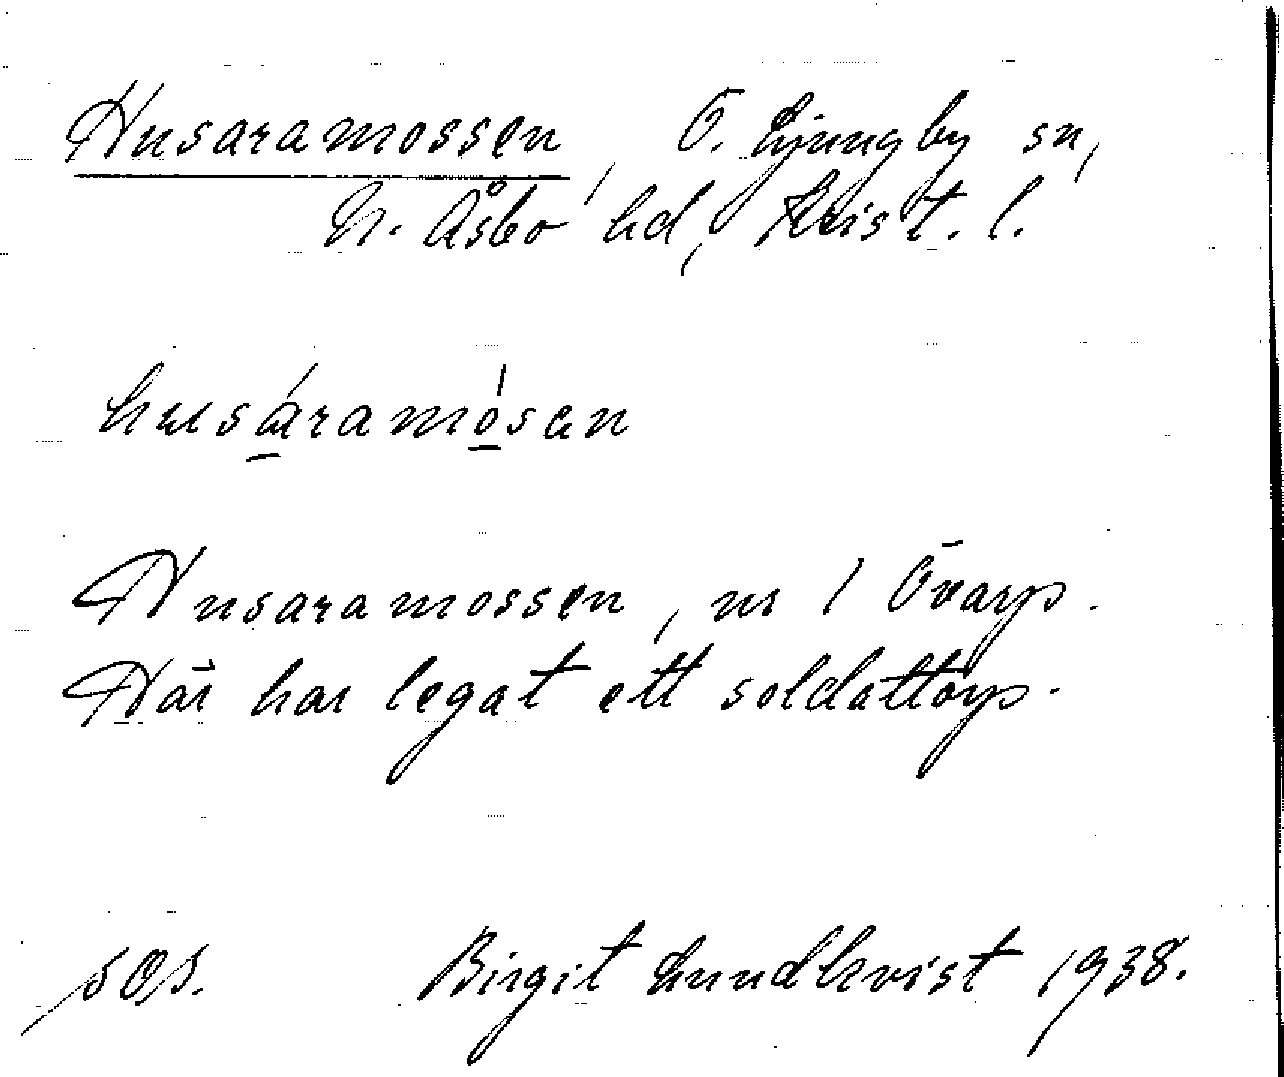 Husaramossen, Ö. Ljungby sn,
N. Åsbo hd, Krist. l.
husáramósen
Husaramossen, nr 1 Övarp.
Här har legat ett soldattorp.
Birgit Lundkvist 1938.